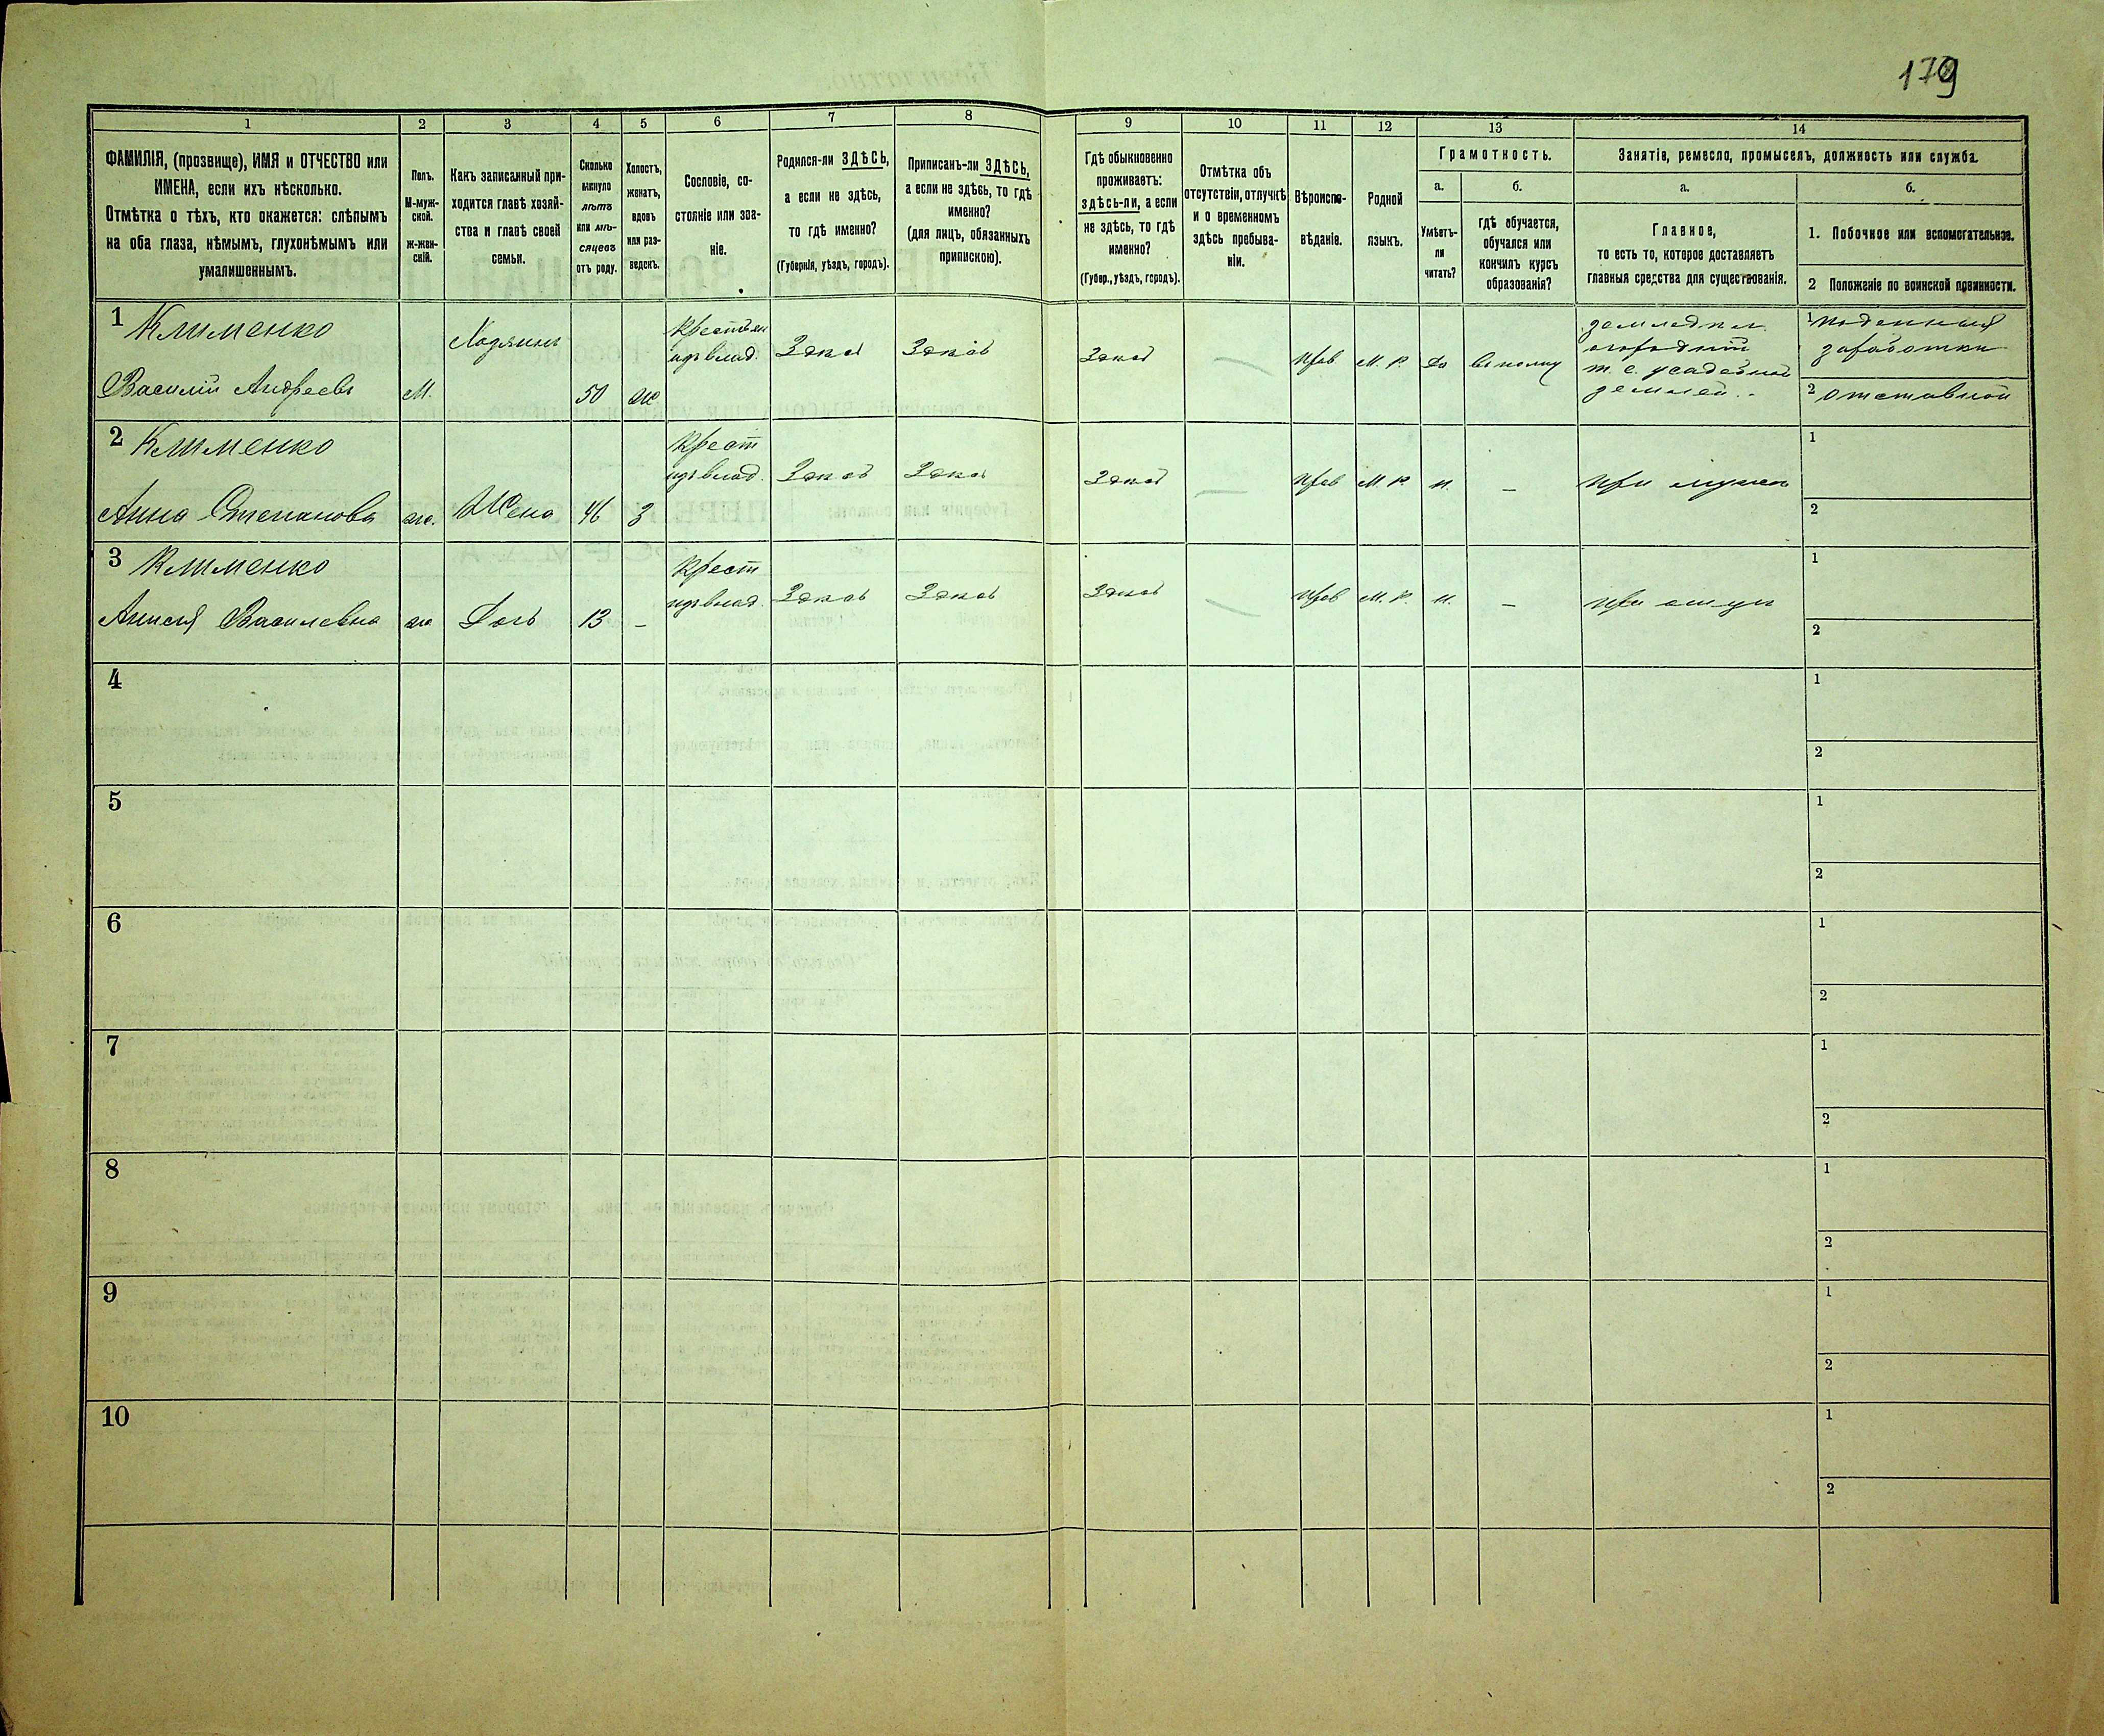 179
1
2
3
4
5
6
7
8
9
10
11
12
13
14
ФАМИЛІЯ, (прозвище), ИМЯ и ОТЧЕСТВО или
ИМЕНА, если ихъ нѣсколько.
Отмѣтка о тѣхъ, кто окажется: слѣпымъ
на оба глаза, нѣмымъ, глухонѣмымъ или
умалишеннымъ.
Полъ.
М-муж-
ской.
Ж-жен-
скій.
Какъ записанный при-
ходится главѣ хозяй-
ства и главѣ своей
семьи.
Сколько
минуло
лѣтъ
или мѣ-
сяцевъ
отъ роду.
Холостъ,
женатъ,
вдовъ
или раз-
веденъ.
Сословіе, со-
стояніе или зва-
ніе.
Родился-ли ЗДѢСЬ,
а если не здѣсь,
то гдѣ именно?
(Губернія, уѣздъ, городъ).
Приписанъ-ли ЗДѢСЬ,
а если не здѣсь, то гдѣ
именно?
(для лицъ, обязанныхъ
припискою).
Гдѣ обыкновенно
проживаетъ:
здѣсь-ли, а если
не здѣсь, то гдѣ
именно?
(Губер., уѣздъ, городъ).
Отмѣтка объ
отсутствіи, отлучкѣ
и о временномъ
здѣсь пребыва-
ніи.
Вѣроиспо-
вѣданіе.
Родной
языкъ.
Грамотность.
а.
б.
Умѣетъ-
ли
читать?
гдѣ обучается,
обучался или
кончилъ курсъ
образованія?
Занятіе, ремесло, промыселъ, должность или служба.
а.
б.
Главное,
то есть то, которое доставляетъ
главныя средства для существованія.
1. Побочное или вспомогательное.
2 Положеніе по воинской повинности.
1 Клименко
Василій Андреевъ
М.
Хозяинъ
50
ж
Крестьян
изъ влад.
Здѣсь
Здѣсь
Здѣсь
—
Прав
М. Р.
Да
земледѣл
т. е. усадебной
землей.
1 поденный
заработки
2 отставной
2 Клименко
Анна Степанова
ж.
Жена
46
З
Крест
изъ влад.
Здѣсь
Здѣсь
Здѣсь
—
Прав
М. Р.
н.
—
при мужѣ
1
2
3 Клименко
Василевна
ж
Дочь
13
—
Крест
изъ влад.
Здѣсь
Здѣсь
Здѣсь
—
Прав
М. Р.
н.
—
при отцѣ
1
2
4
1
2
5
1
2
6
1
2
7
1
2
8
1
2
9
1
2
10
1
2